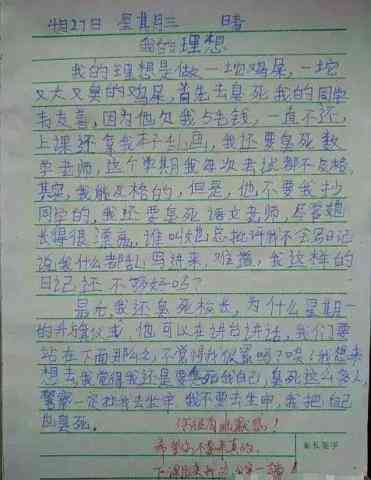 4月27日 星期三 晴
我的理想
我的理想是做一坨鸡屎,一坨
又大又臭的鸡屎,首先去臭死我的同学
韦友善,因为他欠我5毛钱,一直不还,
上课还拿我本子乱画,我还要臭死数
学老师,这个学期我每次考试都不及格,
其实,我能及格的,但是,他不要我抄
同学的,我还要臭死语文老师,尽管她
长得很漂亮,谁叫她总批评我不会写日记
说我什么都乱写进来,难道,我这样的
日记还不够好吗?
最后,我还臭死校长,为什么星期一
的升旗仪式 他可以在讲台讲话,我们要
站在下面那么久,不觉得我很累吗?唉!我想来
想去,我觉得我还是要臭死我自己,臭死这么多人,
警察一定拉我去坐牢,我不要去坐牢,我把自己
也臭死。
你很有贡献感!
希望你不要来真的。
下课
家长签字